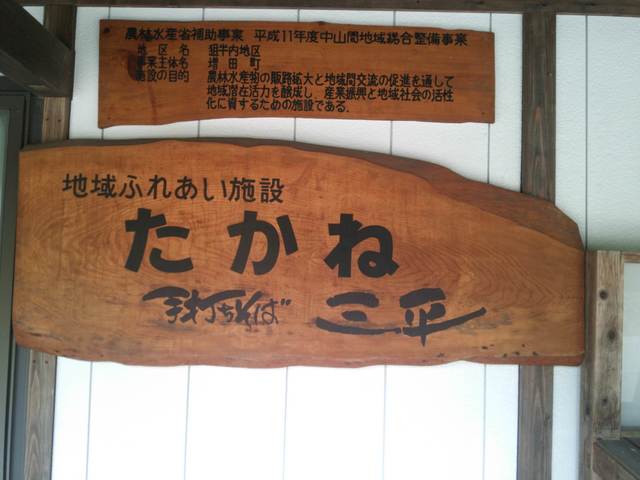 農林水産省補助事業 平成11年度中山間地域総合整備事業
地区名 狙半内地区
事業主体名 増田町
施設の目的 農林水産物の販路拡大と地域間交流の促進を通して
地域潜在活力を醸成し、産業振興と地域社会の活性
化に資するための施設である.
地域ふれあい施設
たかね
手打ちそば 三平